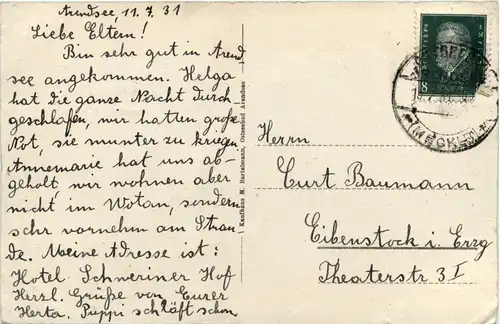 Arendsee, 11.7.31
Liebe Eltern!
Bin sehr gut in Arend
see angekommen. Helga
hat die ganze Nacht durch
geschlafen, wir hatten große
Not, sie munter zu kriegen
Annemarie hat uns ab-
geholt, wir wohnen aber
nicht im Wotan, sondern
sehr vornehm am Stran
de. Meine Adresse ist:
Hotel Schweriner Hof
Herzl. Grüße von Eurer
Herta. Puppi schläft schon.
Kaufhaus M. Ostseebad Arendsee
8
(MECKLB)
Herrn
Curt Baumann
Eibenstock i. Erzg
Theaterstr 3 I